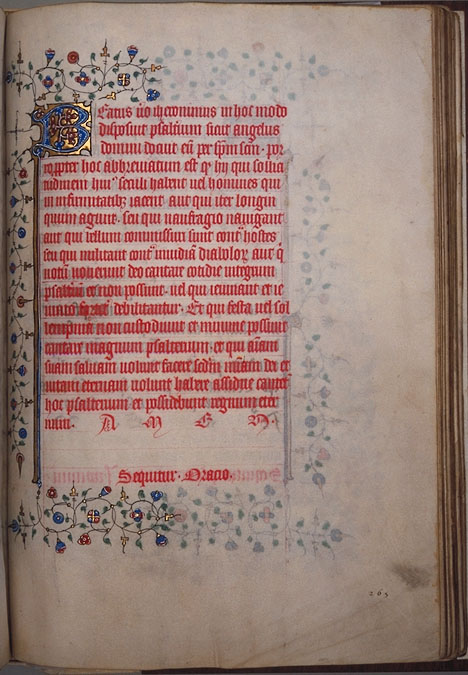 Beatus vo iheronimus in hoc modo
disposuit psalterium sicut angelus
domini docuit eum per spm scm. por
ro propter hoc abbreviatum est qr hii qui sollici
tudinem huius seculi habent uel homines qui
in infirmitatibz iacent aut qui iter longin
quum agunt. seu qui naufragio nauigant
aut qui bellum commissuri sunt contra hostes
seu qui militant contra inuidiam diabolorum aut qui
notum uouerunt deo cantare cotidie integrum
psalterium et non possunt. uel qui ieiunant et ie
iunio debilitantur. Et qui festa uel sol
lempnia non custodiunt et minime possunt
cantare magnum psalterium. et qui animam
suam saluam uolunt facere scdm miam dei et
uitam eternam uolunt habere assidue cantent
hoc psalterium et possidebunt regnum eter
num. A M E N.
Sequitur. Oracio.
265